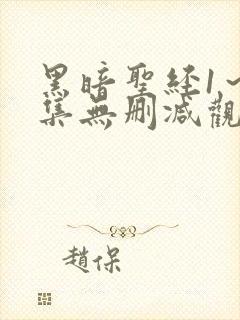 黑暗聖経1~
集無刪減觀
趙保